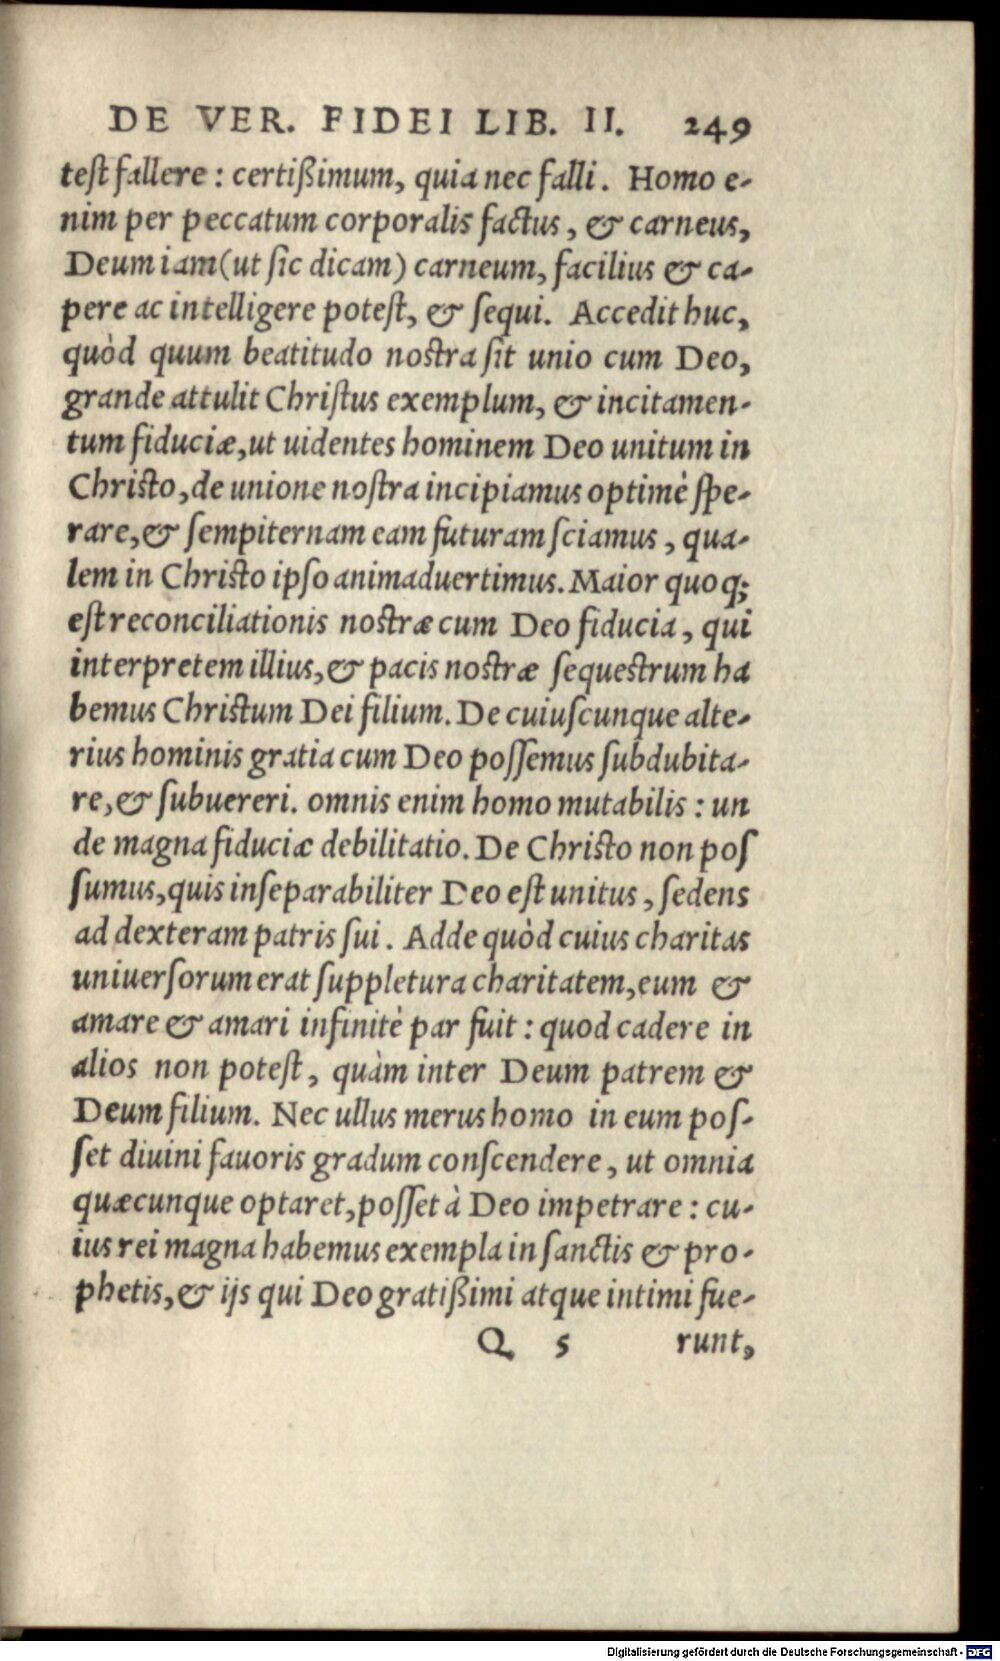 DE VER. FIDEI LIB. II. 249
test fallere : certißimum, quia nec falli. Homo e-
nim per peccatum corporalis factus, & carneus,
Deum iam (ut sic dicam) carneum, facilius & ca-
pere ac intelligere potest, & sequi. Accedit huc,
quòd quum beatitudo nostra sit unio cum Deo,
grande attulit Christus exemplum, & incitamen-
tum fiduciæ, ut uidentes hominem Deo unitum in
Christo, de unione nostra incipiamus optimè spe-
rare, & sempiternam eam futuram sciamus, qua-
lem in Christo ipso animaduertimus. Maior quoq;
est reconciliationis nostræ cum Deo fiducia, qui
interpretem illius, & pacis nostræ sequestrum ha
bemus Christum Dei filium. De cuiuscunque alte-
rius hominis gratia cum Deo possemus subdubita-
re, & subuereri. omnis enim homo mutabilis : un
de magna fiduciæ debilitatio. De Christo non pos
sumus, quis inseparabiliter Deo est unitus, sedens
ad dexteram patris sui. Adde quòd cuius charitas
uniuersorum erat suppletura charitatem, eum &
amare & amari infinitè par fuit : quod cadere in
alios non potest, quàm inter Deum patrem &
Deum filium. Nec ullus merus homo in eum pos-
set diuini fauoris gradum conscendere, ut omnia
quæcunque optaret, posset à Deo impetrare : cu-
ius rei magna habemus exempla in sanctis & pro-
phetis, & ijs qui Deo gratißimi atque intimi fue-
Q 5 runt,
Digitalisierung gefördert durch die Deutsche Forschungsgemeinschaft - DFG